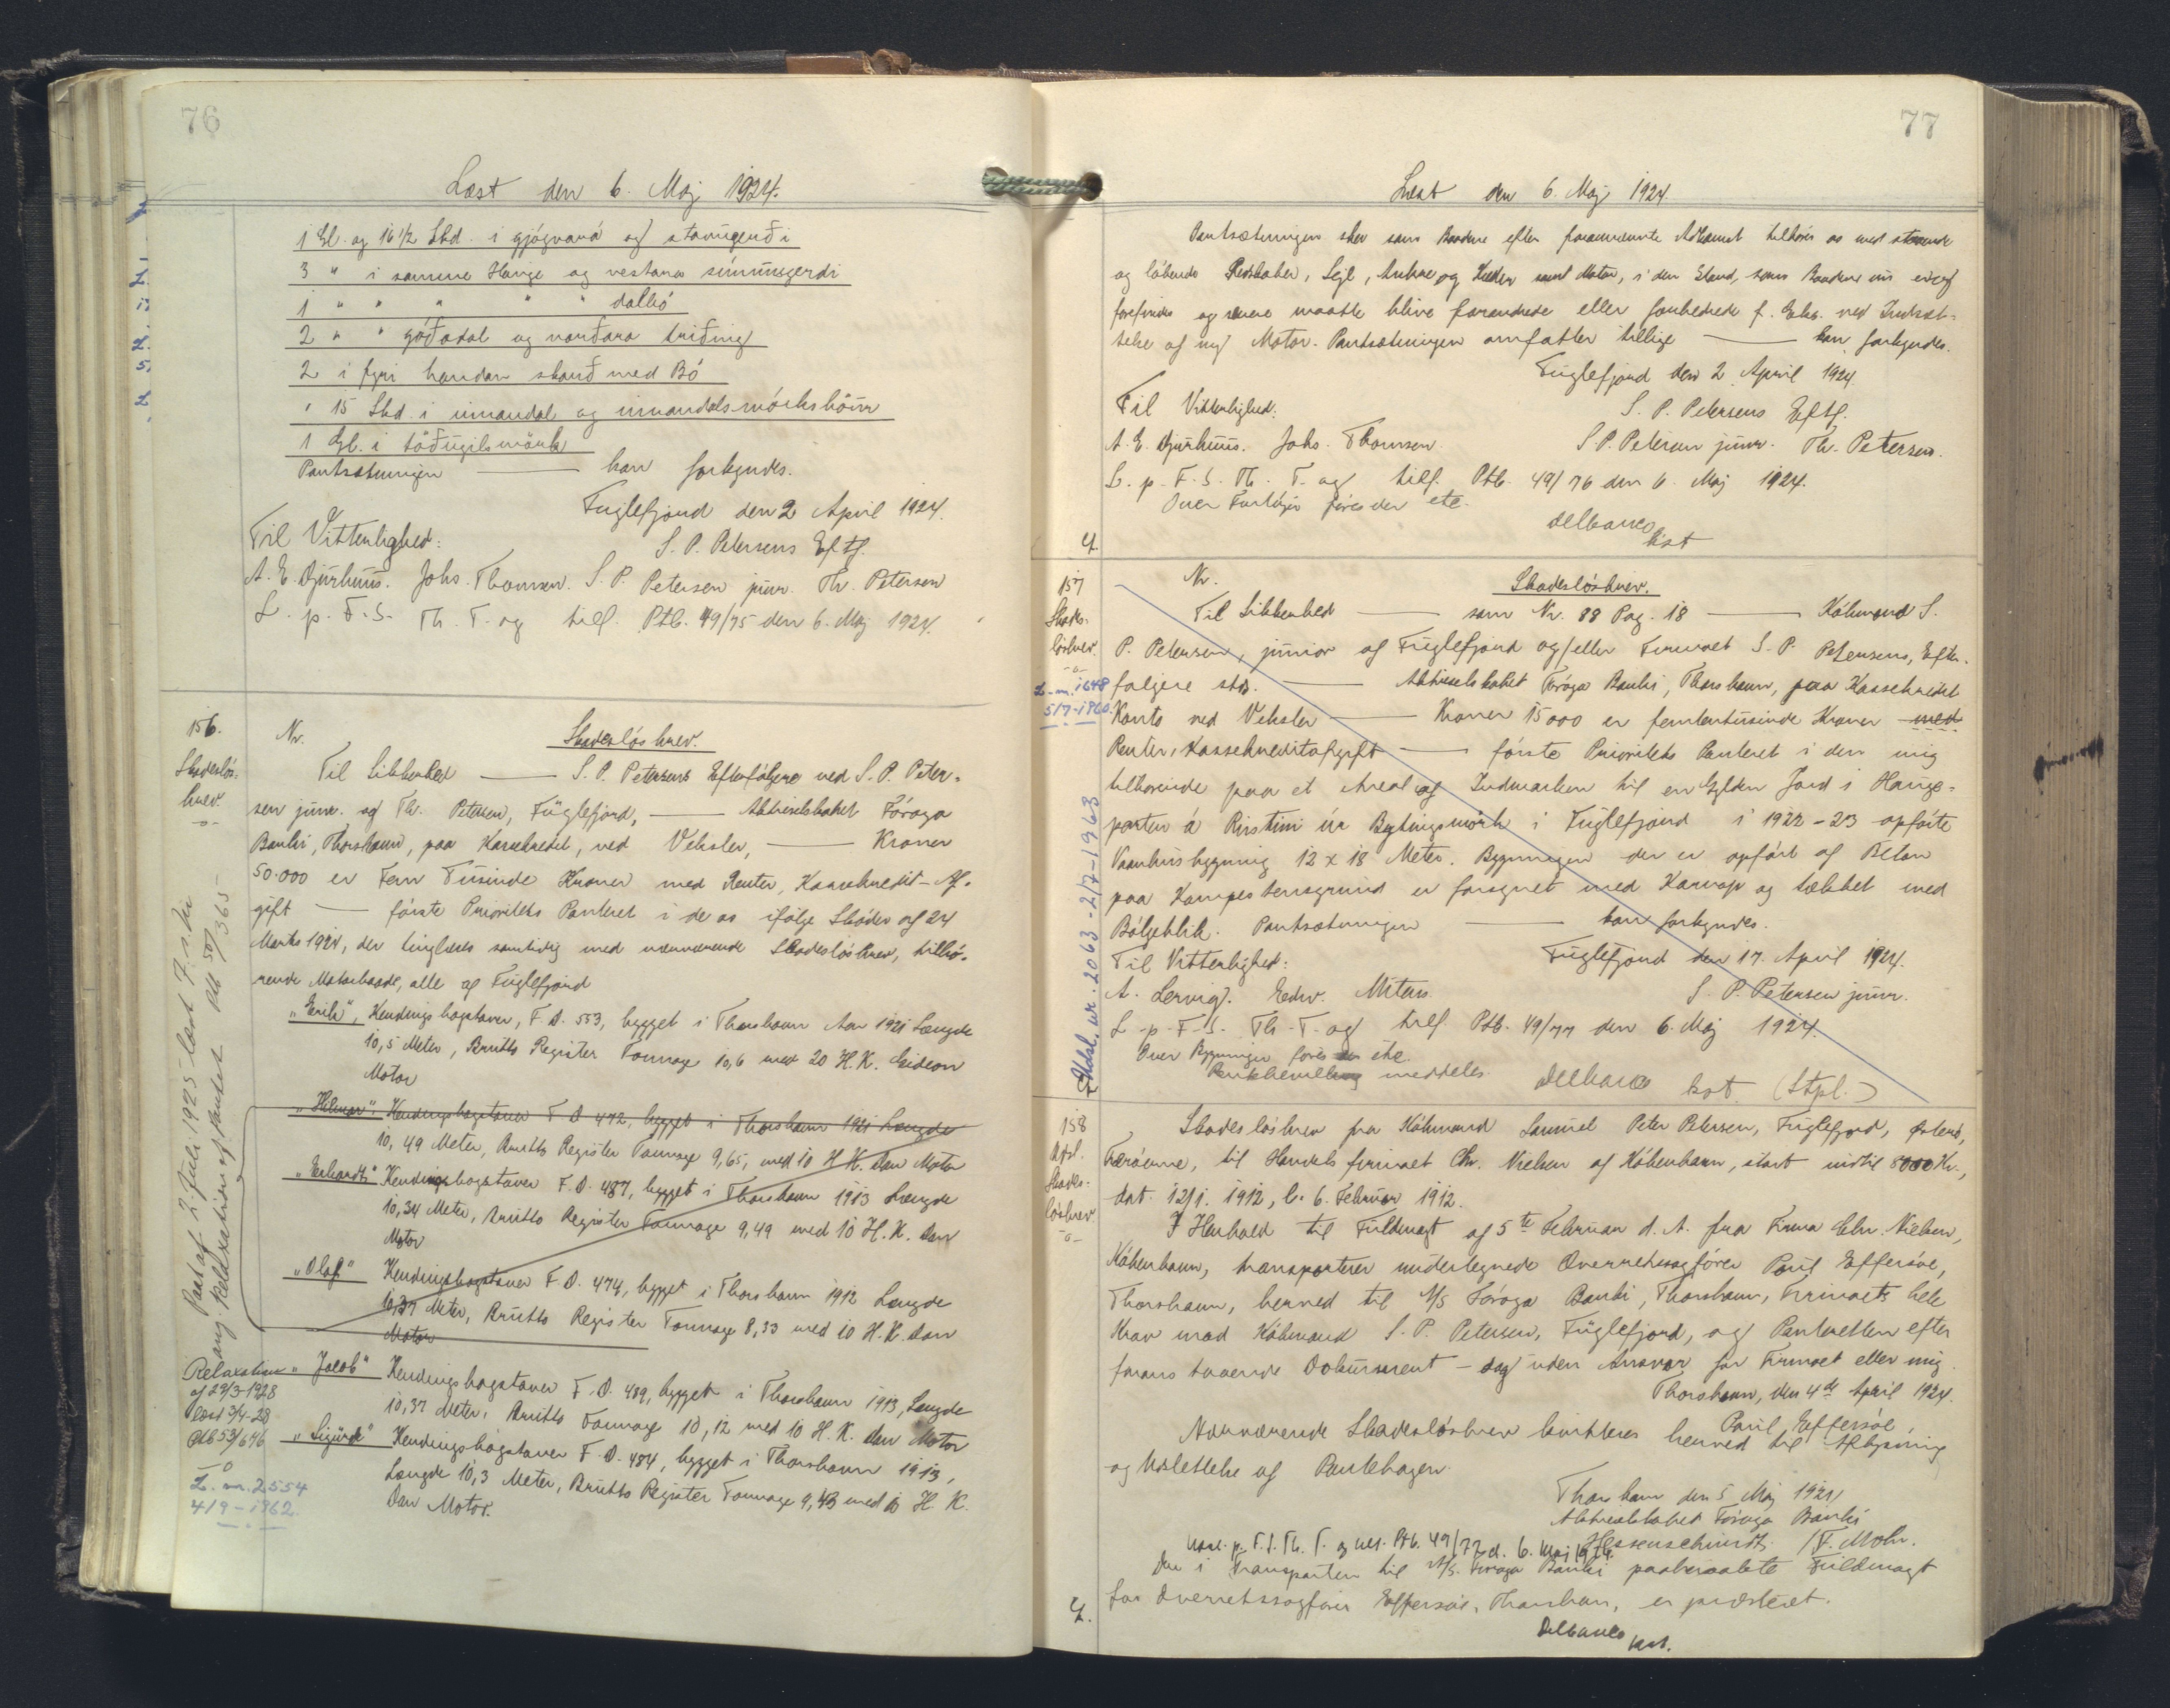 76
Læst den 6. Maj 1924.
1 Gl. og 16 1/2 Skd. i gjógvará og
3 " i samme Hauge og vestara
1 " " " " " dalbó
2 " " góðadal og norðara triðing
2 i fyri handan skarð með Bó
" 15 Skd. i innandal og
1 Gl. i
Pantsætningen ——— kan forkyndes.
Fuglefjord den 2 April 1924.
Til Vitterlighed:
S. P. Petersens Eftf.
A. E. Djurhuus. Johs. Thomsen. S. P. Petersen junr. Th. Petersen
L. p. F. S. Th. T. og tilf. Ptb. 49/75 den 6. Maj 1924.
156.
Skadesløs-
brev.
Nr. Skadesløsbrev.
Til Sikkerhed ——— S. P. Petersens Efterfølgere ved S. P. Peter-
sen junr. og Th. Petersen, Fuglefjord, ——— Aktieselskabet Føroya
Banki, Thorshavn, paa Kassekredit, ved Veksler, ——— Kroner
50.000 er Fem Tusinde Kroner med Renter, Kassekredit-Af-
gift ——— første Prioritets Panteret i de os ifølge Skøder af 24
Marts 1924, der tinglæses samtidig med nærværende Skadesløsbrev, tilhø-
rende Motorbaade, alle af Fuglefjord
"Erik", Kendingsbogstaver, F. D. 553, bygget i Thorshavn Aar 1921 Længde
10,5 Meter, Brutto Register Tonnage 10,6 med 20 H. K. Gideon
Motor
"Hilmar": Kendingsbogstaver F. D. 472, bygget i Thorshavn 1921 Længde
10,49 Meter, Brutto Register Tonnage 9,65, med 10 H. K. Dan Motor
"Erhardt" Kendingsbogstaver F. D. 487, bygget i Thorshavn 1913 Længde
10,34 Meter, Brutto Register Tonnage 9,49 med 10 H. K. Dan
Motor
"Olaf" Kendingsbogstaver F. D. 474, bygget i Thorshavn 1912 Længde
10,37 Meter, Brutto Register Tonnage 8,33 med 10 H. K. Dan
Motor
"Jacob" Kendingsbogstaver F. D. 489, bygget i Thorshavn 1913, Længde
10,37 Meter, Brutto Tonnage 10,12 med 10 H. K. Dan Motor
"Sigurd" Kendingsbogstaver F. D. 484, bygget i Thorshavn 1913,
Længde 10,3 Meter, Brutto Register Tonnage 9,43 med 10 H. K.
Dan Motor.
Paat af 2 Juli 1925 læst 7. s. M.
ang. Relaxation af Pantet Ptb 50/365
Relaxation
af 29/3-1928
læst 3/4-28
Ptb 53/676
L. nr. 2554
4/9-1962
77
Læst den 6. Maj 1924.
Pantsætningen sker som Baadene efter forannævnte Adkomst tilhører os med staaende
og løbende Redskaber, Sejl, Ankre og Kæder samt Motor, i den Stand, som Baadene nu er og
forefindes og senere maatte blive forandrede eller forbedrede f. Eks. ved Indsæt-
telse af ny Motor. Pantsætningen omfatter tillige ——— kan forkyndes.
Fuglefjord den 2. April 1924
Til Vitterlighed:
S. P. Petersens Eftf.
A. E. Djurhuus. Johs. Thomsen.
S. P. Petersen junr. Th. Petersen.
L. p. F. S. Th. T. og tilf. Ptb. 49/76 den 6. Maj 1924.
Over Fartøjer føres der etc.
Delbanco
kst
157
Skades-
løsbrev.
L. nr. 1648
5/7-1960.
Nr. Skadesløsbrev.
Til Sikkerhed ——— som Nr. 88 Pag. 18 ——— Købmand S.
P. Petersen, junior af Fuglefjord og/eller Firmaet S. P. Petersens, Efter-
følgere sts. ——— Aktieselskabet Føroya Banki, Thorshavn, paa Kassekredit
Konto ved Veksler ——— Kroner 15000 er femtentusinde Kroner med
Renter, Kassekreditafgift ——— første Prioritets Panteret i den mig
tilhørende paa et Areal af Indmarken til en Gylden Jord i Hauge-
parten á Ristini úr Bytingsmørk i Fuglefjord i 1922-23 opførte
Vaanhusbygning 12 x 18 Meter. Bygningen der er opført af Beton
paa Kampestensgrund er forsynet med Karnap og tækket med
Bølgeblik. Pantsætningen ——— kan forkyndes.
Fuglefjord den 17. April 1924.
Til Vitterlighed:
A. Lervig. Edw. Mitens.
S. P. Petersen junr.
L. p. F. S. Th. T. og tilf. Ptb. 49/77 den 6. Maj 1924.
Over Bygninger føres der etc.
meddeles. Delbanco kst. (Stpl.)
Udsl. nr. 2063 - 2/7-1963
158
Afsl.
Skades-
løsbrev
Skadesløsbrev fra Købmand Samuel Peter Petersen, Fuglefjord, Østerø,
Færøerne, til Handelsfirmaet Chr. Nielsen af København, stort indtil 8000 Kr.,
dat. 12/1. 1912, l. 6. Februar 1912.
I Henhold til Fuldmagt af 5te Februar d. A. fra Firma Chr. Nielsen,
København, transporterer undertegnede Overretssagfører Poul Effersøe,
Thorshavn, herved til A/S Føroya Banki, Thorshavn, Firmaets hele
Krav mod Købmand S. P. Petersen, Fuglefjord, og Panteretten efter
foranstaaende Dokument - dog uden Ansvar for Firmaet eller mig.
Thorshavn, den 4de April 1924.
Poul Effersøe
Nærværende Skadesløsbrev kvitteres herved til Aflysning
og Udslettelse af Pantebogen.
Thorshavn den 5 Maj 1924
Aktieselskabet Føroya Banki
Hessenschmidt / F. Mohr.
Udsl. p. F. S. Th. T. og udsl. Ptb. 49/77 d. 6. Maj 1924.
Den i Transporten til A/S. Føroya Banki paaberaabte Fuldmagt
for Overretssagfører Effersøe, Thorshavn, er præsteret.
Delbanco
kst.